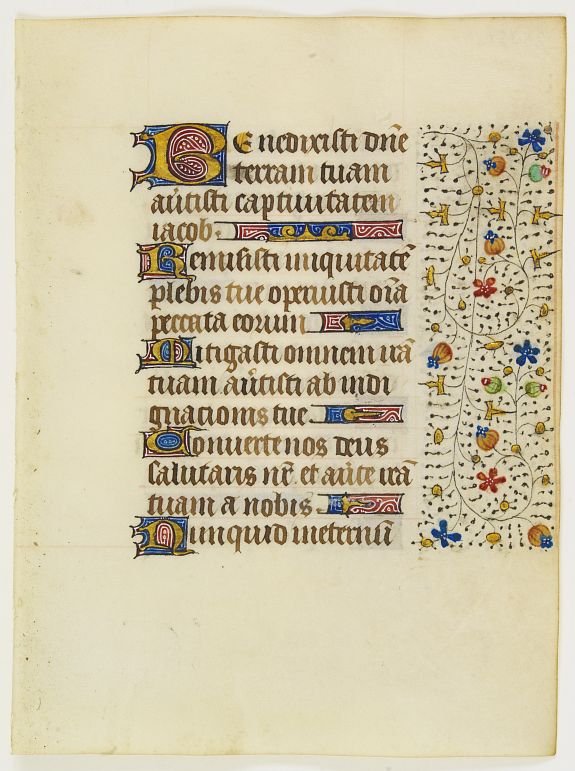 Benedixisti dñe
terram tuam
av̄tisti captivitatem
iacob.
Remisisti iniquitatē
plebis tue operuisti oīa
peccata eorum
Mitigasti omnem irā
tuam av̄tisti ab indi
gnacionis tue
Converte nos deus
salutaris nr̄. et av̄te irā
tuam a nobis
Nunquid ineternū